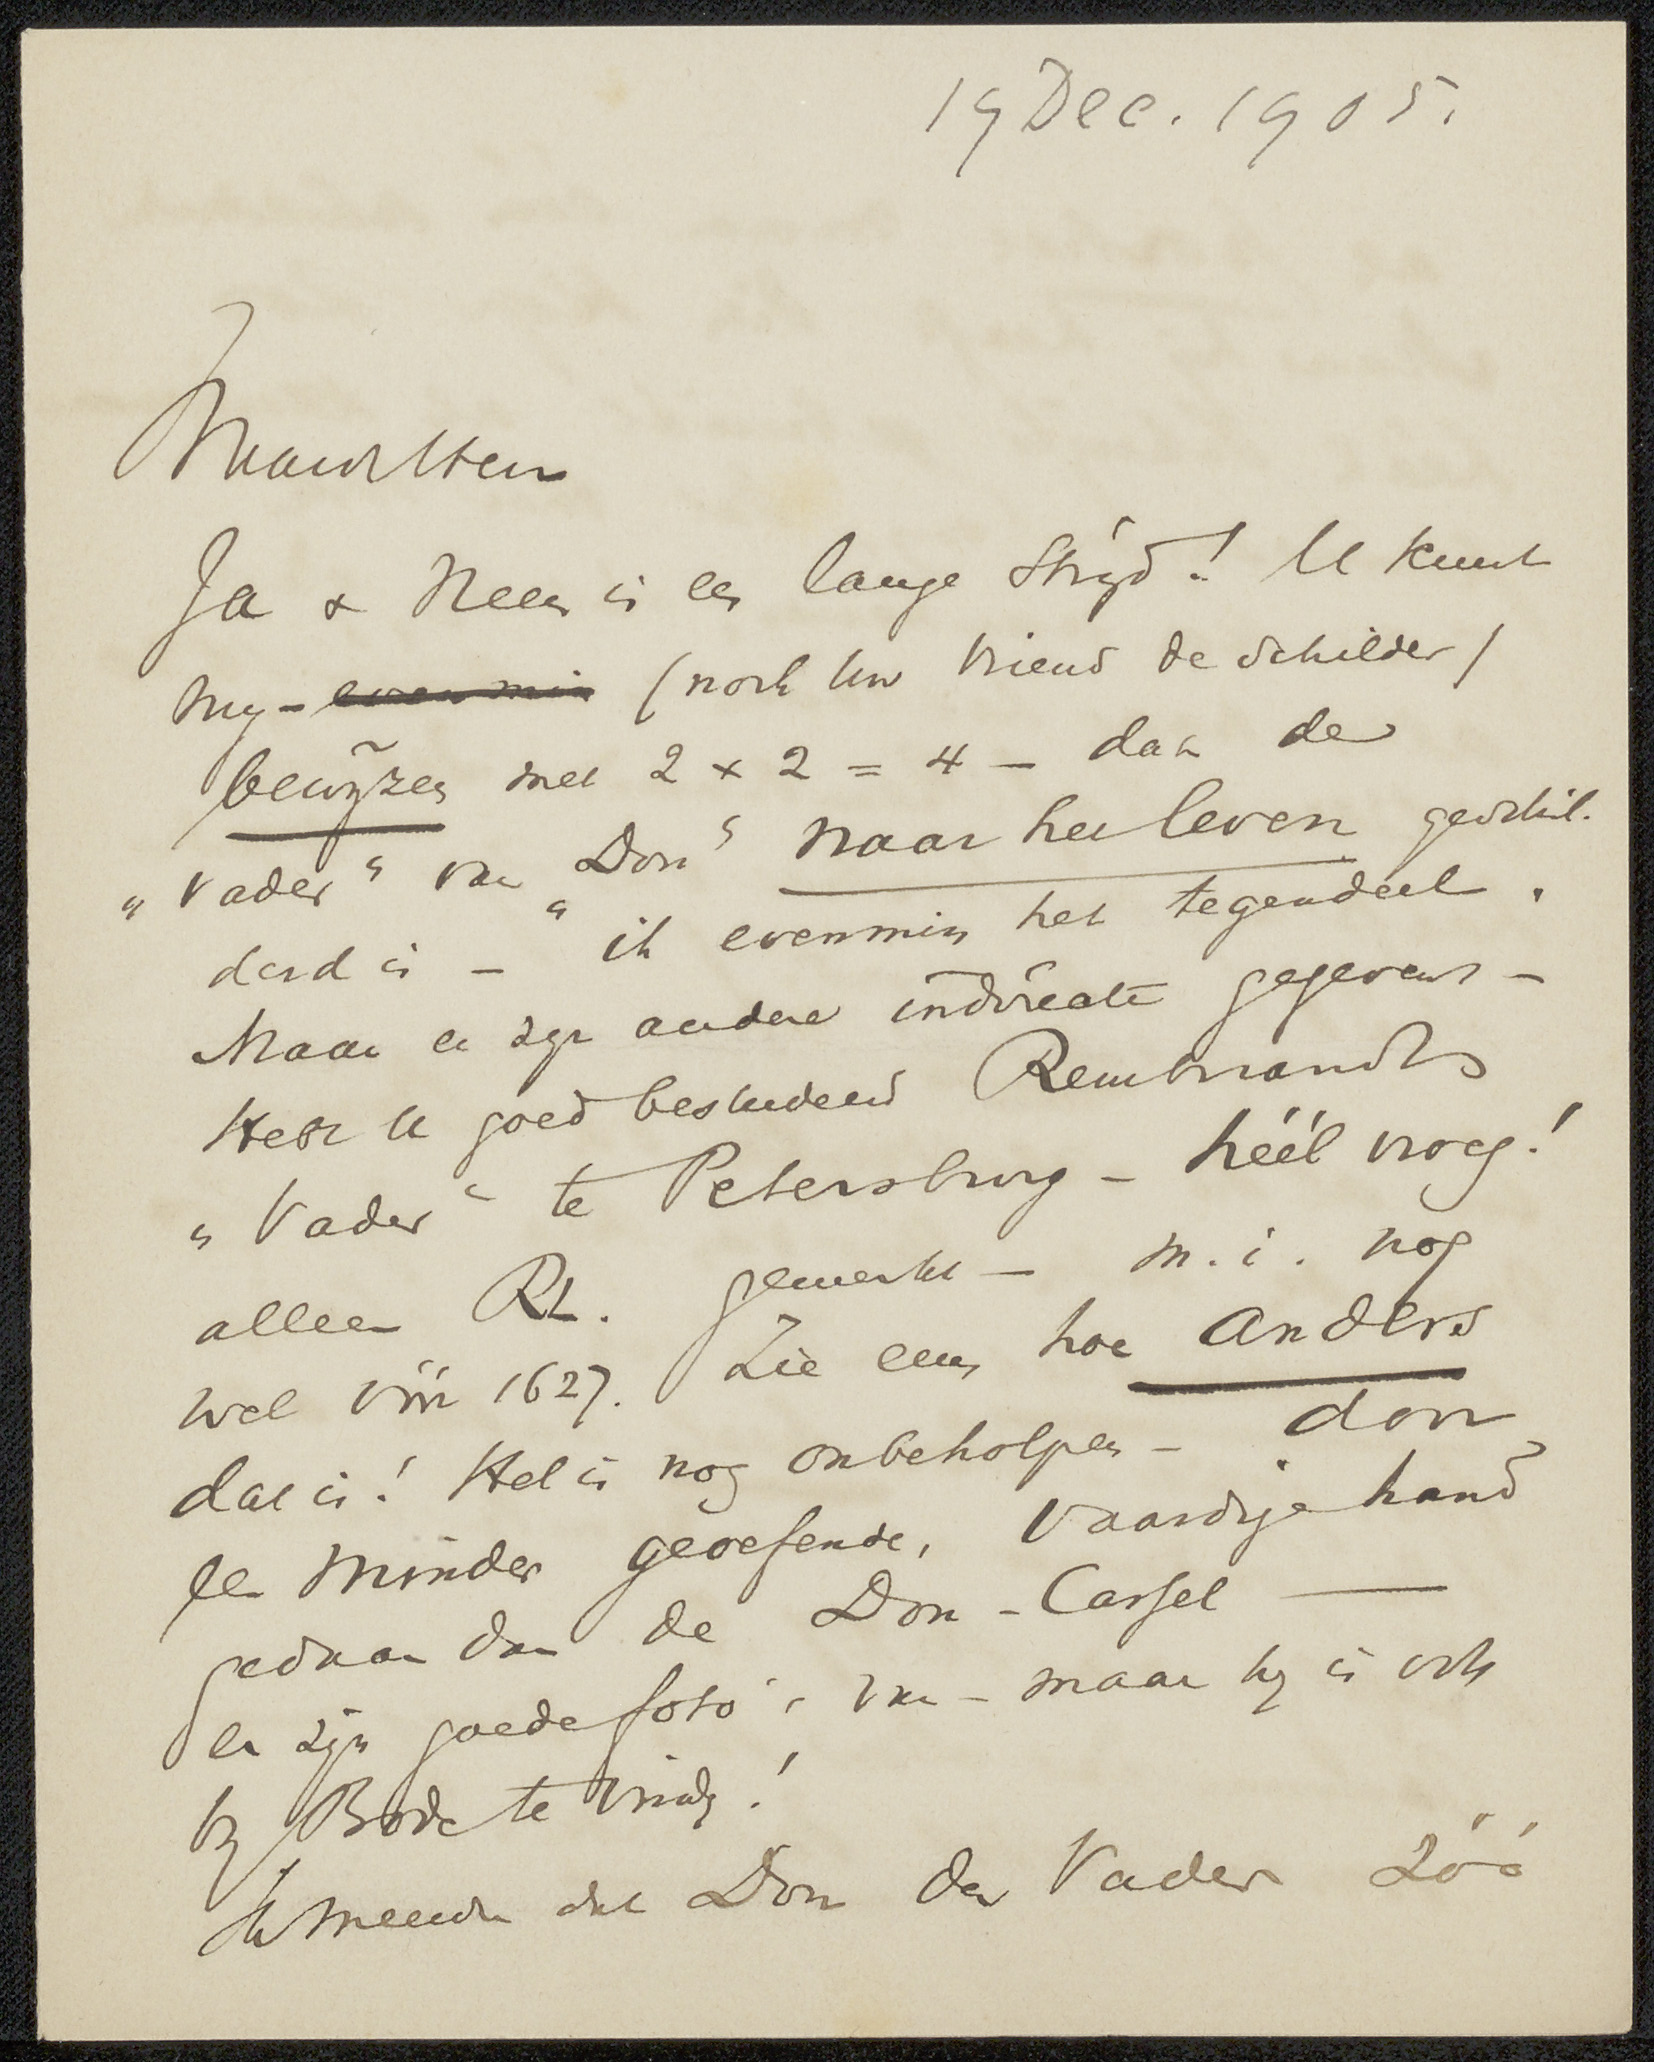 19 Dec. 1905.
Waarde Heer
Ja & Neen is een lange Strijd! U kunt
my – evenmin (noch Uw vriend de schilder)
bewijzen met 2 x 2 = 4 – dat de
„Vader" van „Dou" naar het leven geschil-
derd is – ik evenmin het tegendeel.
Maar er zyn andere indirecte gegevens –
Hebt U goed bestudeerd Rembrandts
„Vader" te Petersburg – héél vroeg!
alleen RL. gemerkt – m.i. nog
wel vóór 1627. Zie eens hoe anders
dat is! Het is nog onbeholpen – door
een minder geoefende, vaardige hand
gedaan dan de Dou – Cassel —
er zijn goede foto's van – maar hy is ook
by Bode te vinden!
Ik meende dat Dou den Vader zóó